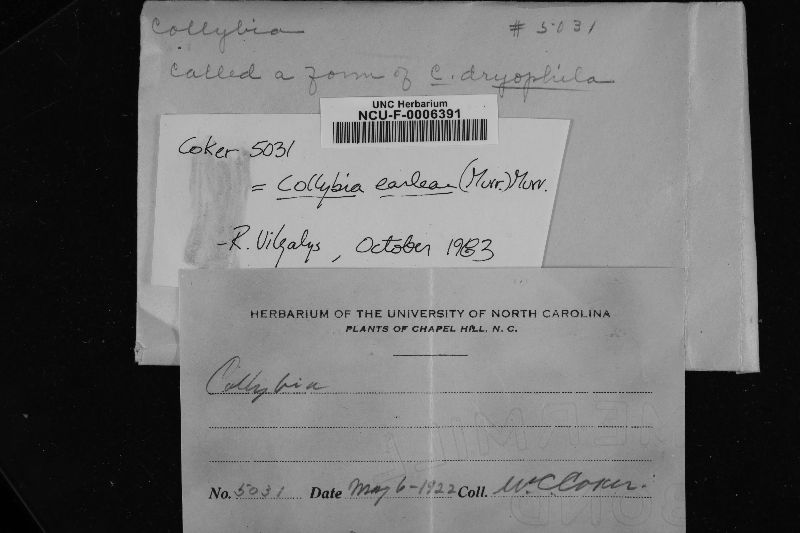 Collybia # 5031
called a form of C. dryophila
UNC Herbarium
NCU-F-0006391
Coker 5031
= Collybia earleae (Murr.) Murr.
- R. Vilgalys, October 1983
HERBARIUM OF THE UNIVERSITY OF NORTH CAROLINA
PLANTS OF CHAPEL HILL, N. C.
Collybia
No. 5031 Date May 6-1922 Coll. W.C. Coker.